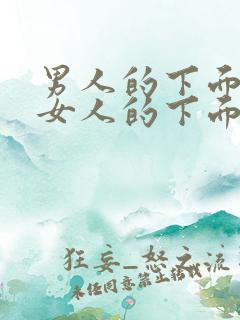 男人的下面
女人的下面
狂妄_怒之流
未经同意禁止搭讪